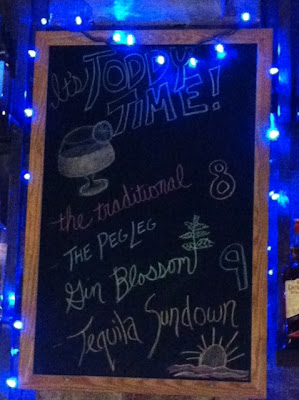 It's TODDY
TIME!
- the traditional 8
- THE PEG LEG
- Gin Blossom 9
- Tequila Sundown